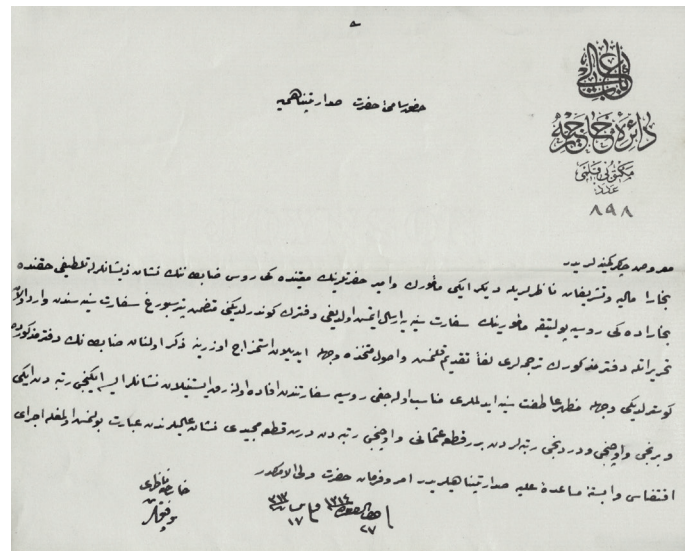 باب عالی
دائرهٔ خارجیه
مکتوبی قلمی
عدد
٨٩٨
حضور سامئ حضرت صدارتپناهی‌یه
معروض چاکر کمینه‌لریدر
بخارا مالیه و تشریفات ناظرلریله دیگر ایکی مأمورك و امیر حضرتلرینك معیتنده کی روس ضابطه‌نك نشان ذیشانله تلطیفی حقنده
بخاراده کی روسیه پولیتیقه مأمورینك سفارت سنیه‌یه ارسال ایتمش اولدیغی دفترك کوندرلدیکنی متضمن پترسبورغ سفارت سنیه‌سندن وارد اولان
تحریراتله دفتر مذکورك ترجمه‌لری لفاً تقدیم قلنمش و اصول متخذه وجهله ایدیلان استمزاج اوزرینه ذکر اولنان ضابطه‌نك دفتر مذکورده
کوسترلدیکی وجهله مظهر عاطفت سنیه ایدلملری مناسب اوله‌جغی روسیه سفارتندن افاده اولنوب ایستنیلان نشانلر ایسه ایکنجی رتبه‌دن ایکی
و برنجی و اوچنجی و دردنجی رتبه‌لردن برر قطعه عثمانی و اوچنجی رتبه‌دن درت قطعه مجیدی نشان عالیلرندن عبارت بولنمش اولمغله اجرای
اقتضاسی وابستهٔ مساعدهٔ علیهٔ صدارتپناهیلریدر امر و فرمان حضرت ولی الامرکدر
خارجیه ناظری
توفیق
١٣١٤
٣١٣
٢٧
١٧